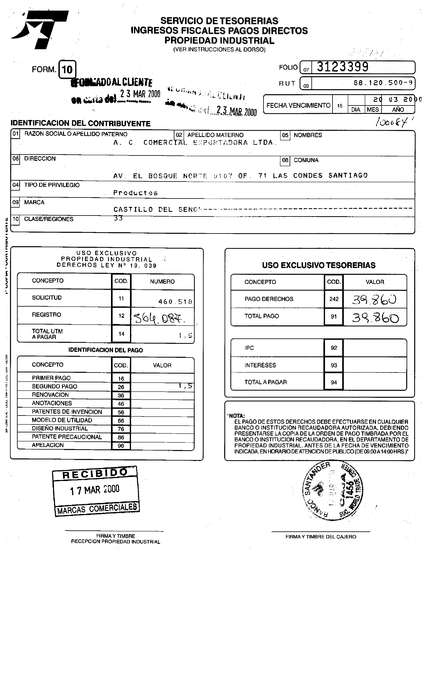 SERVICIO DE TESORERIAS
INGRESOS FISCALES PAGOS DIRECTOS
PROPIEDAD INDUSTRIAL
(VER INSTRUCCIONES AL DORSO)
FORM. 10
FOLIO 07 3123399
RUT 03 88.120.500-9
INFORMADO AL CLIENTE
en carta del 23 MAR 2000
23 MAR 2000
FECHA VENCIMIENTO 15 20 03 2000
DIA MES AÑO
IDENTIFICACION DEL CONTRIBUYENTE
01 RAZON SOCIAL O APELLIDO PATERNO 02 APELLIDO MATERNO 05 NOMBRES
A. C. COMERCIAL EXPORTADORA LTDA.
06 DIRECCION 08 COMUNA
AV. EL BOSQUE NORTE 0107 OF. 71 LAS CONDES SANTIAGO
04 TIPO DE PRIVILEGIO
Productos
09 MARCA
CASTILLO DEL SENO
10 CLASE/REGIONES 33
USO EXCLUSIVO
PROPIEDAD INDUSTRIAL
DERECHOS LEY Nº 19.039
CONCEPTO COD. NUMERO
SOLICITUD 11 460.518
REGISTRO 12 564.087.
TOTAL UTM
A PAGAR 14 1,5
IDENTIFICACION DEL PAGO
CONCEPTO COD. VALOR
PRIMER PAGO 16
SEGUNDO PAGO 26 1,5
RENOVACION 36
ANOTACIONES 46
PATENTES DE INVENCION 56
MODELO DE UTILIDAD 66
DISEÑO INDUSTRIAL 76
PATENTE PRECAUCIONAL 86
APELACION 96
USO EXCLUSIVO TESORERIAS
CONCEPTO COD. VALOR
PAGO DERECHOS 242 39.860
TOTAL PAGO 91 39.860
IPC 92
INTERESES 93
TOTAL A PAGAR 94
*NOTA:
EL PAGO DE ESTOS DERECHOS DEBE EFECTUARSE EN CUALQUIER
BANCO O INSTITUCION RECAUDADORA AUTORIZADA, DEBIENDO
PRESENTARSE LA COPIA DE LA ORDEN DE PAGO TIMBRADA POR EL
BANCO O INSTITUCION RECAUDADORA, EN EL DEPARTAMENTO DE
PROPIEDAD INDUSTRIAL, ANTES DE LA FECHA DE VENCIMIENTO
INDICADA, EN HORARIO DE ATENCION DE PUBLICO (DE 09:00 A 14:00 HRS.)*
RECIBIDO
17 MAR 2000
MARCAS COMERCIALES
BANCO SANTANDER
FIRMA Y TIMBRE
RECEPCION PROPIEDAD INDUSTRIAL
FIRMA Y TIMBRE DEL CAJERO